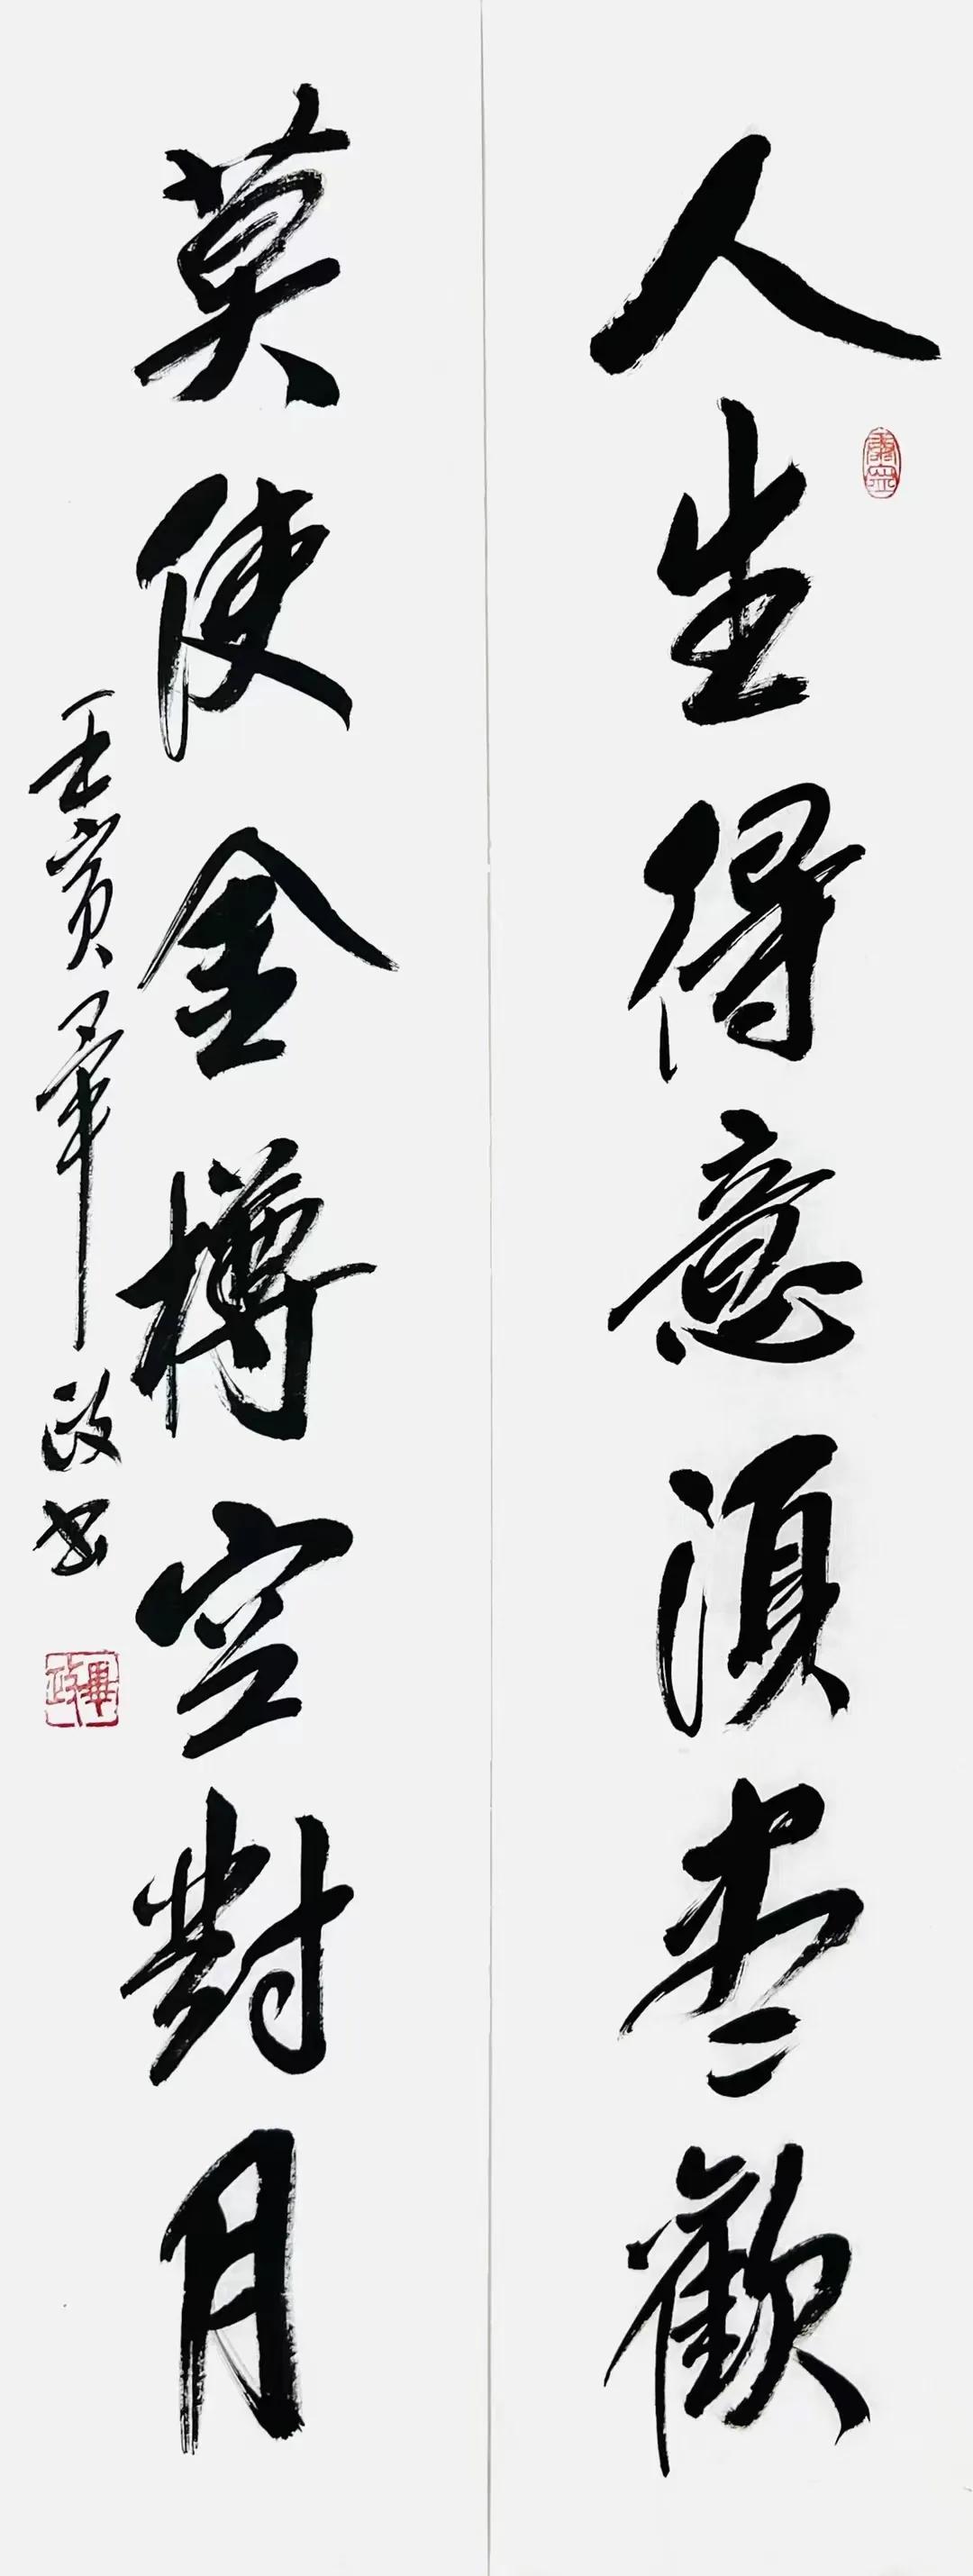 人生得意須盡歡
莫使金樽空對月
壬寅畢政书
畢政